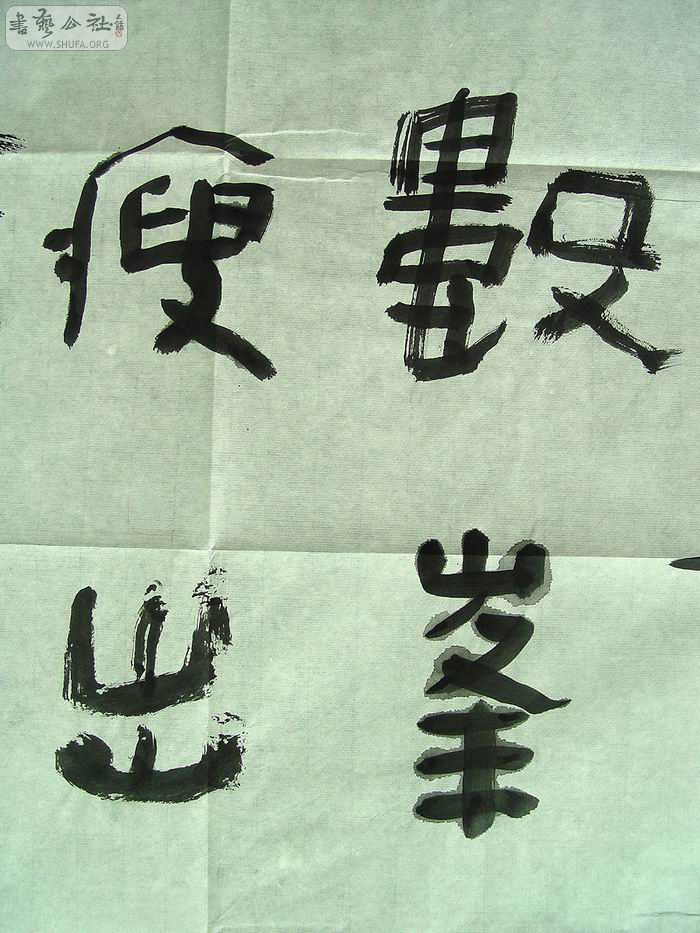 數峯
瘦出
書藝公社
WWW.SHUFA.ORG